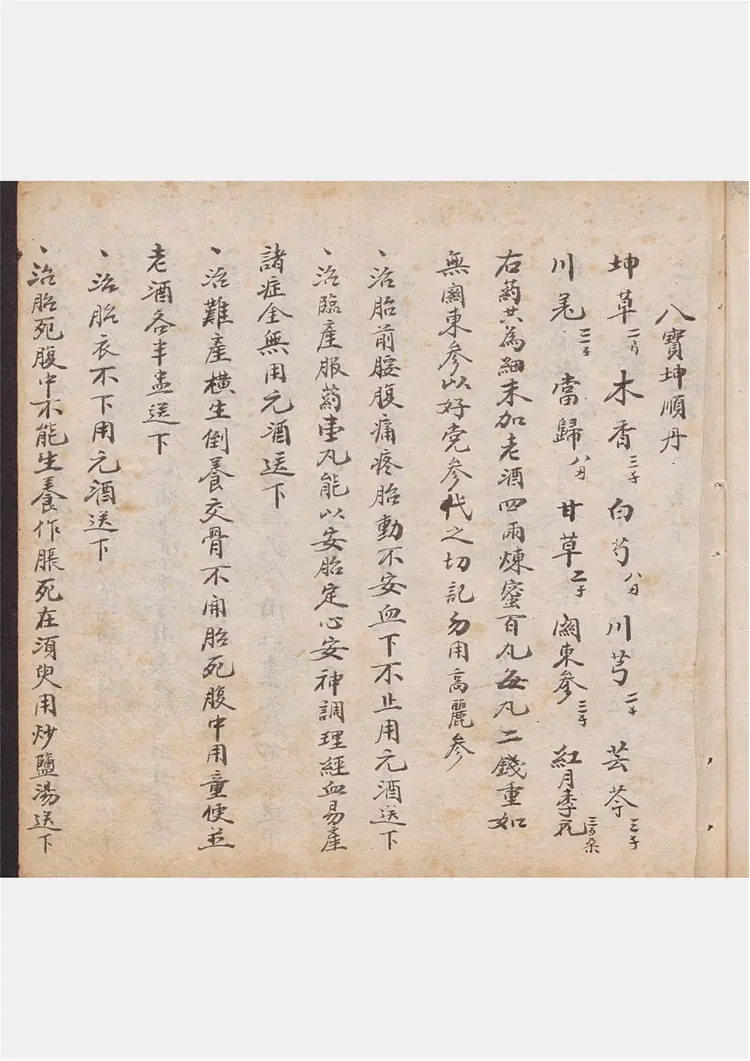 八寶坤順丹
坤草 木香三 白芍八 川芎二 芸苓三
川羌三 當歸八 甘草二 関東參三 紅月季花三百朶
右药共為細末加老酒四兩煉蜜百丸每丸二錢重如
無関東參以好党參代之切記勿用高麗參
、治胎前腰腹痛疼胎動不安血下不止用元酒送下
、治臨產服药壹丸能以安胎定心安神調理經血易產
諸症全無用元酒送下
、治難產橫生倒養交骨不開胎死腹中用童便並
老酒各半盅送下
、治胎衣不下用元酒送下
、治胎死腹中不能生養作脹死在須臾用炒鹽湯送下